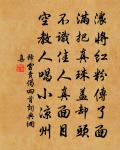 濃將紅粉傅了面
滿把真珠蓋却頭
不識佳人真面目
空教人唱小涼州